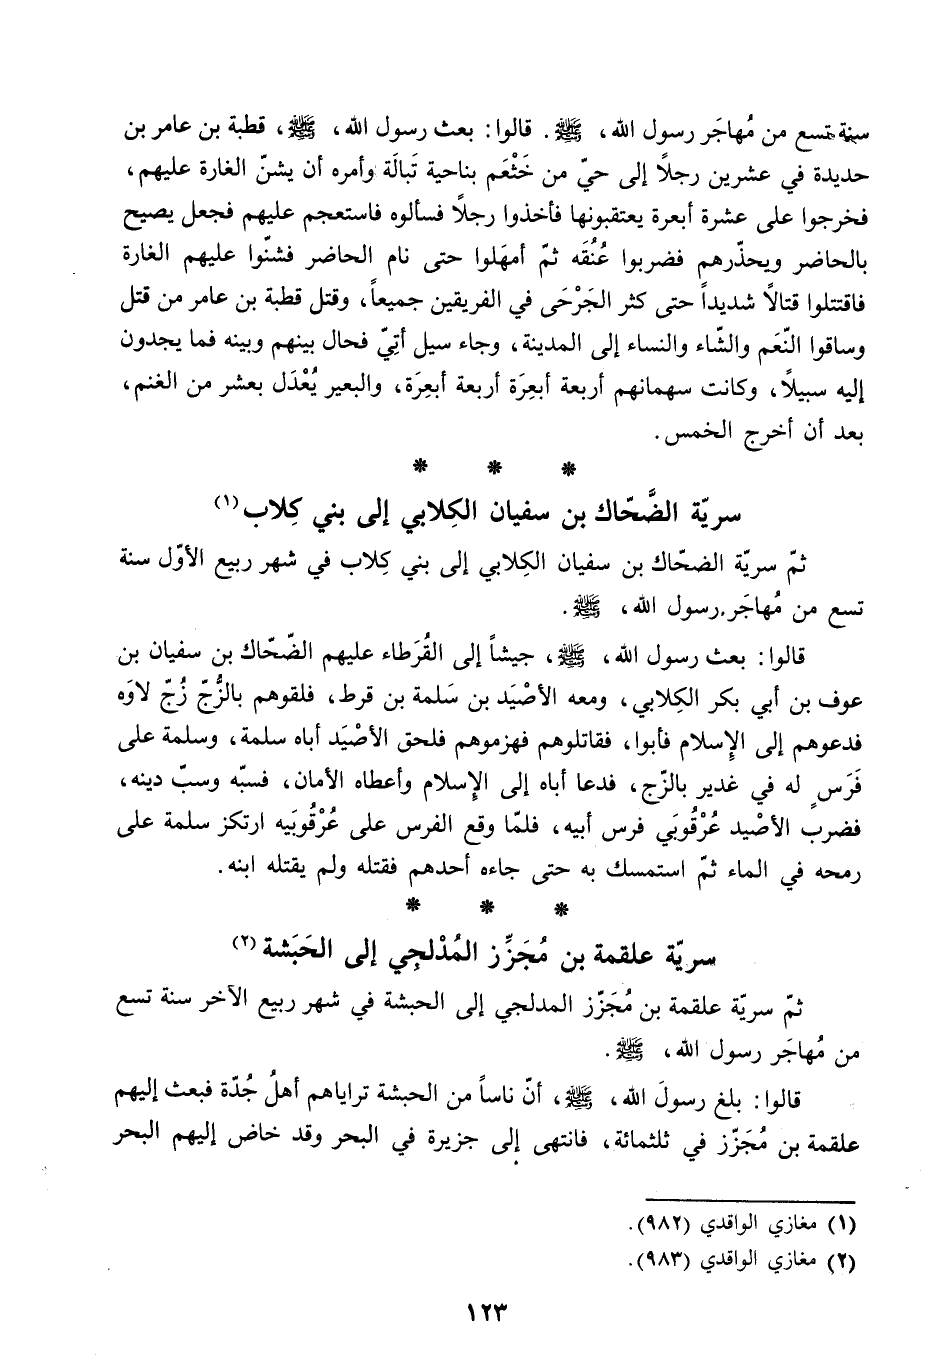 سنة تسع من مُهاجَر رسول الله، ﷺ. قالوا: بعث رسول الله، ﷺ، قطبة بن عامر بن
حديدة في عشرين رجلًا إلى حيّ من خَثْعَم بناحية تَبالَة وأمره أن يشنّ الغارة عليهم،
فخرجوا على عشرة أبعرة يعتقبونها فأخذوا رجلًا فسألوه فاستعجم عليهم فجعل يصيح
بالحاضر ويحذّرهم فضربوا عُنُقَه ثمّ أمهَلوا حتى نام الحاضر فشنّوا عليهم الغارة
فاقتتلوا قتالًا شديداً حتى كثر الجَرْحَى في الفريقين جميعاً، وقتل قطبة بن عامر من قتل
وساقوا النّعَم والشّاء والنساء إلى المدينة، وجاء سيل أتِيّ فحال بينهم وبينه فما يجدون
إليه سبيلًا، وكانت سهمانهم أربعة أبعِرَة أربعة أبعِرَة، والبعير يُعْدَل بعشر من الغنم،
بعد أن أخرج الخمس.
* * *
سريّة الضَّحّاك بن سفيان الكِلابي إلى بني كِلاب(١)
ثمّ سريّة الضحّاك بن سفيان الكِلابي إلى بني كِلاب في شهر ربيع الأوّل سنة
تسع من مُهاجَر رسول الله، ﷺ.
قالوا: بعث رسول الله، ﷺ، جيشاً إلى القُرَطاء عليهم الضّحّاك بن سفيان بن
عوف بن أبي بكر الكِلابي، ومعه الأصْيَد بن سَلمة بن قرط، فلقوهم بالزُّجّ زُجّ لاوَه
فدعوهم إلى الإسلام فأبوا، فقاتلوهم فهزموهم فلحق الأصْيَد أباه سلمة، وسلمة على
فَرَسٍ له في غدير بالزّج، فدعا أباه إلى الإسلام وأعطاه الأمان، فسبّه وسبّ دينه،
فضرب الأصْيد عُرْقُوبَي فرس أبيه، فلمّا وقع الفرس على عُرْقُوبَيه ارتكز سلمة على
رمحه في الماء ثمّ استمسك به حتى جاءه أحدهم فقتله ولم يقتله ابنه.
* * *
سريّة علقمة بن مُجَزِّز المُدْلجِي إلى الحَبَشة(٢)
ثمّ سريّة علقمة بن مُجَزّز المدلجي إلى الحبشة في شهر ربيع الآخر سنة تسع
من مُهاجَر رسول الله، ﷺ.
قالوا: بلغ رسولَ الله، ﷺ، أنّ ناساً من الحبشة تراياهم أهلُ جُدّة فبعث إليهم
علقمة بن مُجَزّز في ثلثمائة، فانتهى إلى جزيرة في البحر وقد خاض إليهم البحر
(١) مغازي الواقدي (٩٨٢).
(٢) مغازي الواقدي (٩٨٣).
١٢٣